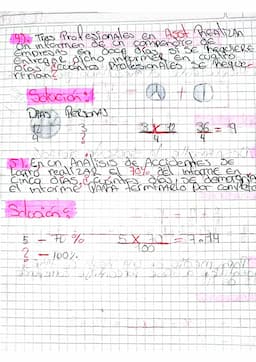 4). Tres Profesionales en Asst Realizan
Un informen de un compendio de
empresas en doce días, si se requiere
entregar dicho informen en cuatro
días ¿Cuántos Profesionales se reque-
rirían?
Solución:
Días Personas
12 3
4 ?
3 x 12 36 = 9
4 4
5). En un Análisis de Accidentes se
logro realizar el 70% del informe en
cinco días. ¿Cuántos días se demoraría
el informe para terminarlo por completo
Solución:
5 — 70 %
? — 100%
5 x 70 = 7.14
100